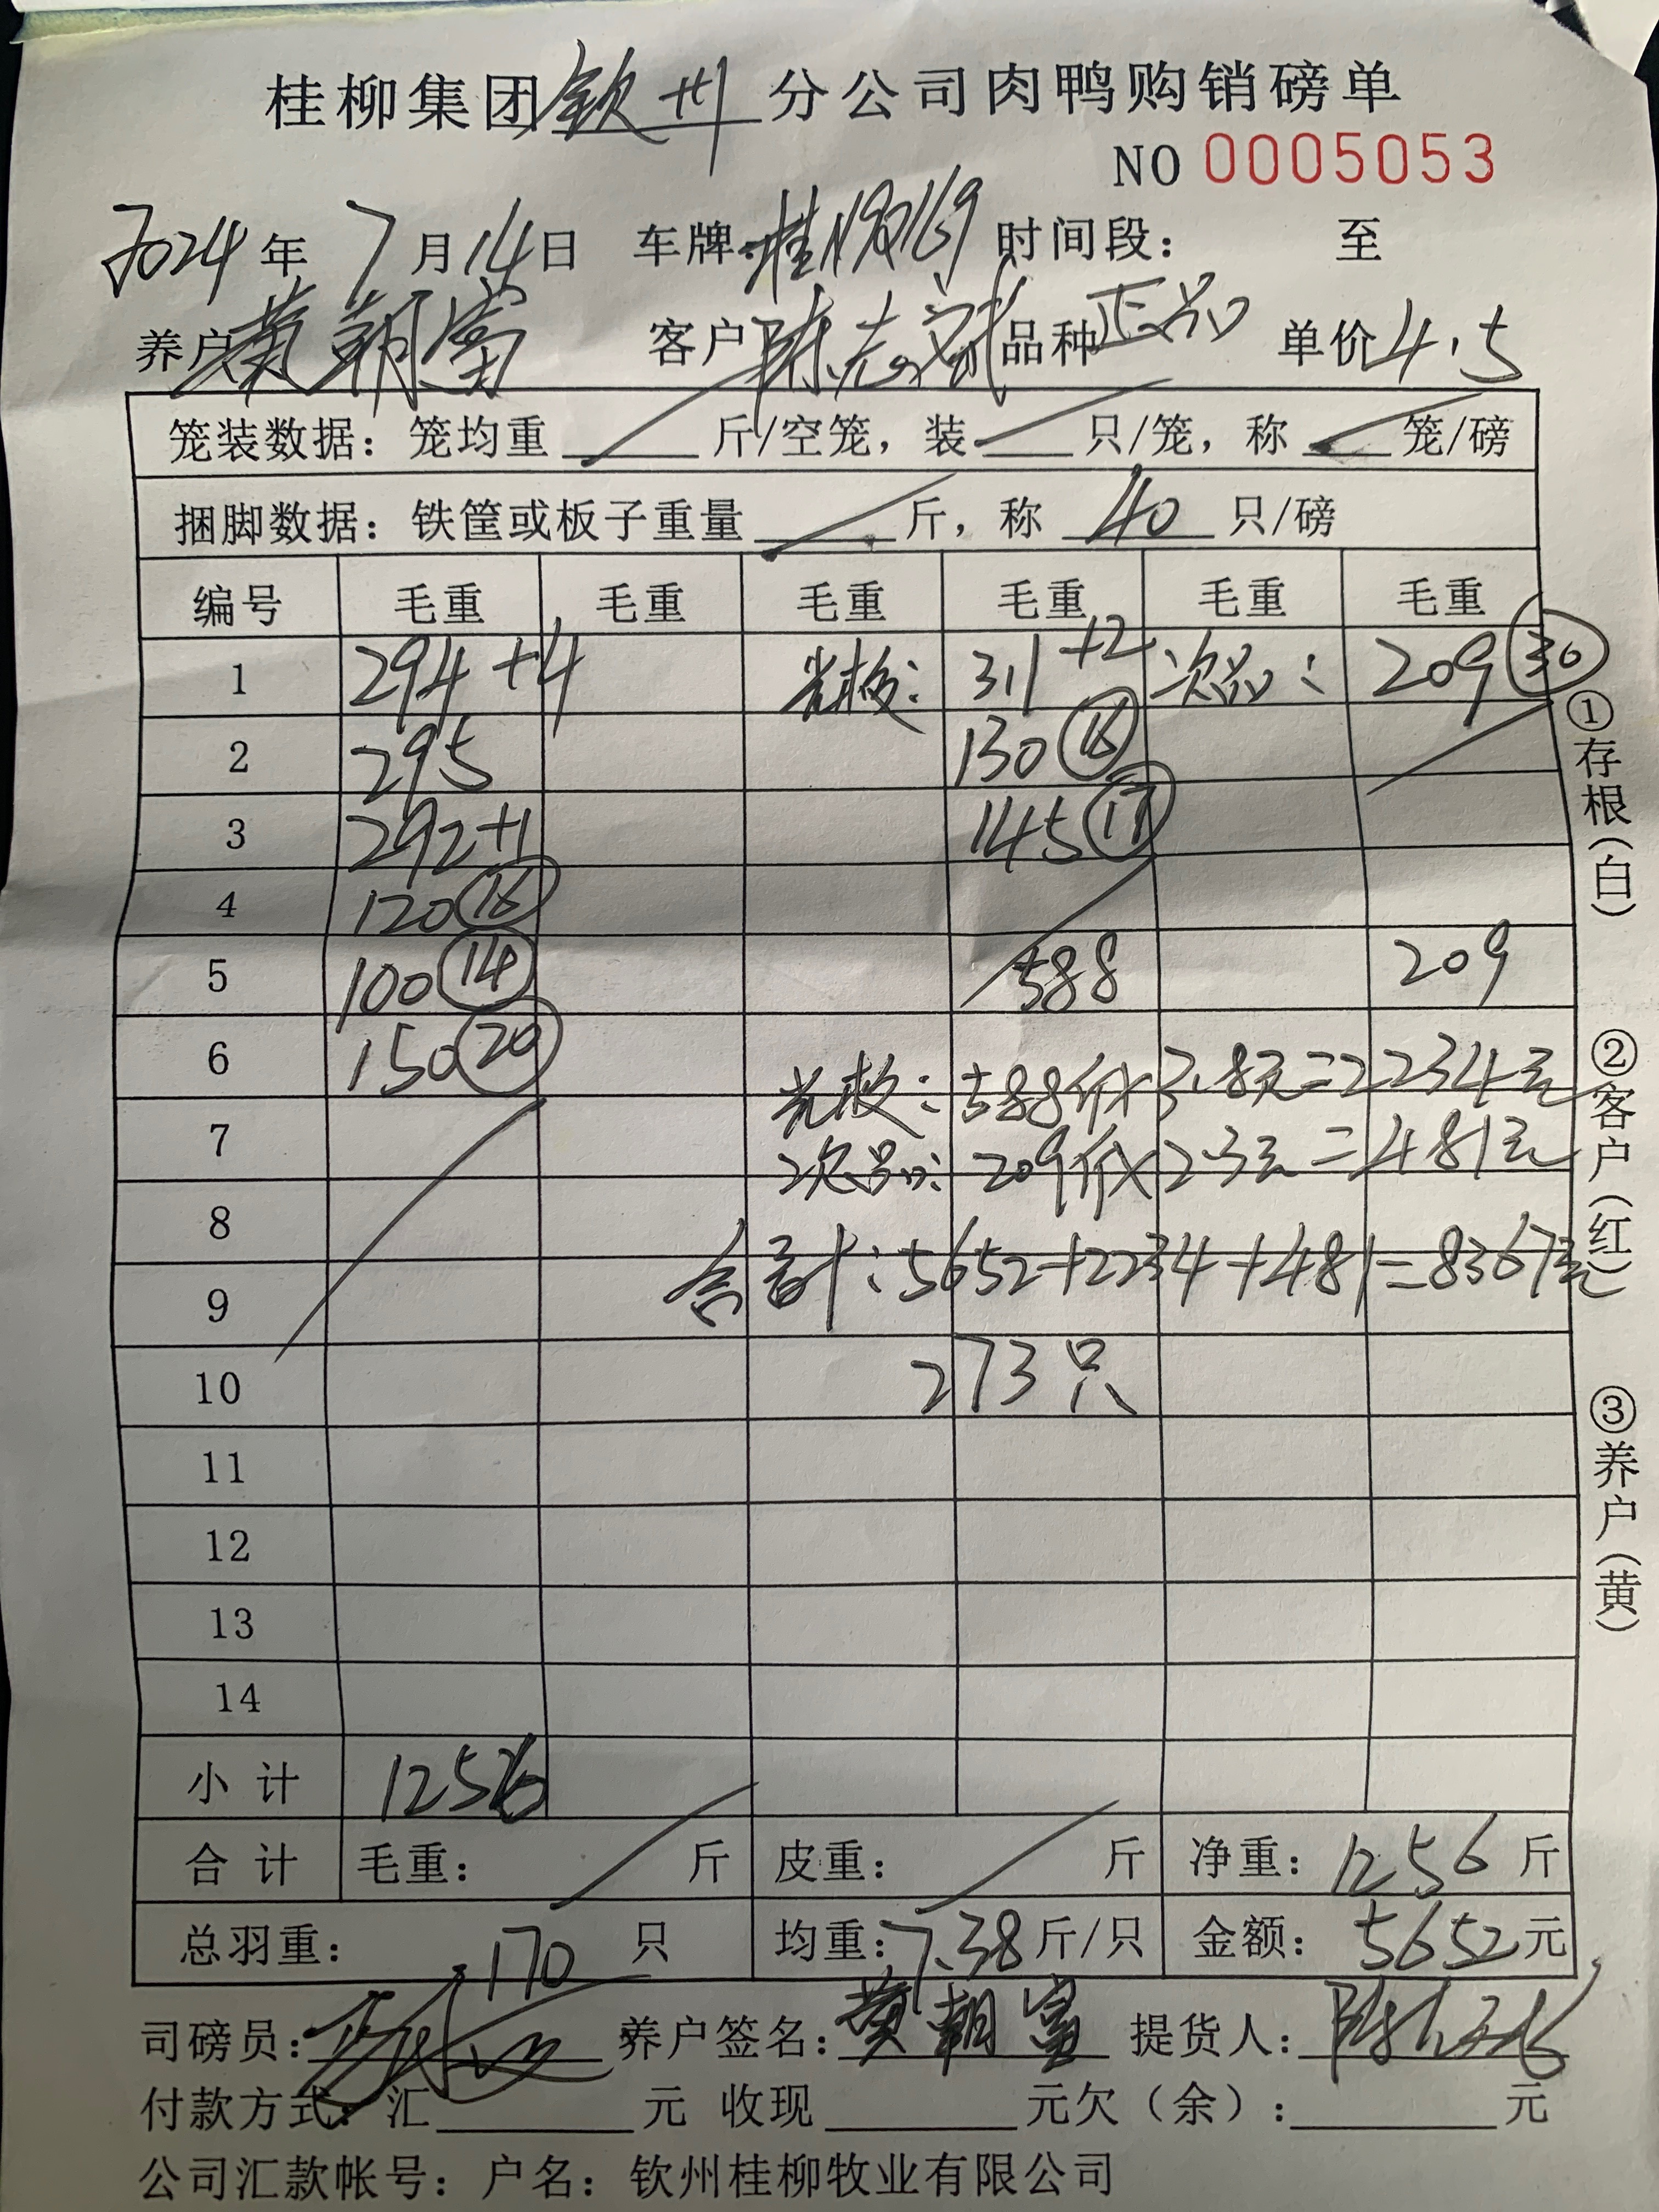 桂柳集团钦州分公司肉鸭购销磅单
NO 0005053
2024年 7月14日 车牌: 时间段: 至
养户黄朝富 客户陈志斌 品种正品 单价4.5
笼装数据:笼均重 斤/空笼,装 只/笼,称 笼/磅
捆脚数据:铁筐或板子重量 斤,称 40 只/磅
编号 毛重 毛重 毛重 毛重 毛重 毛重
1 294+4 311+2 次品: 209 30
2 295 130 16
3 292+1 145 17
4 120 16
5 100 14 588 209
6 150 20 588斤×3.8元=2234元
7 次品: 209斤×2.3元=481元
8
9 合计:5652+2234+481=8367元
10 273只
11
12
13
14
小计 1256
合计 毛重: 斤 皮重: 斤 净重: 1256 斤
总羽重: 170 只 均重:7.38斤/只 金额: 5652元
司磅员: 养户签名:黄朝富 提货人:
付款方式:汇 元 收现 元欠(余): 元
公司汇款帐号:户名:钦州桂柳牧业有限公司
①存根(白)
②客户(红)
③养户(黄)